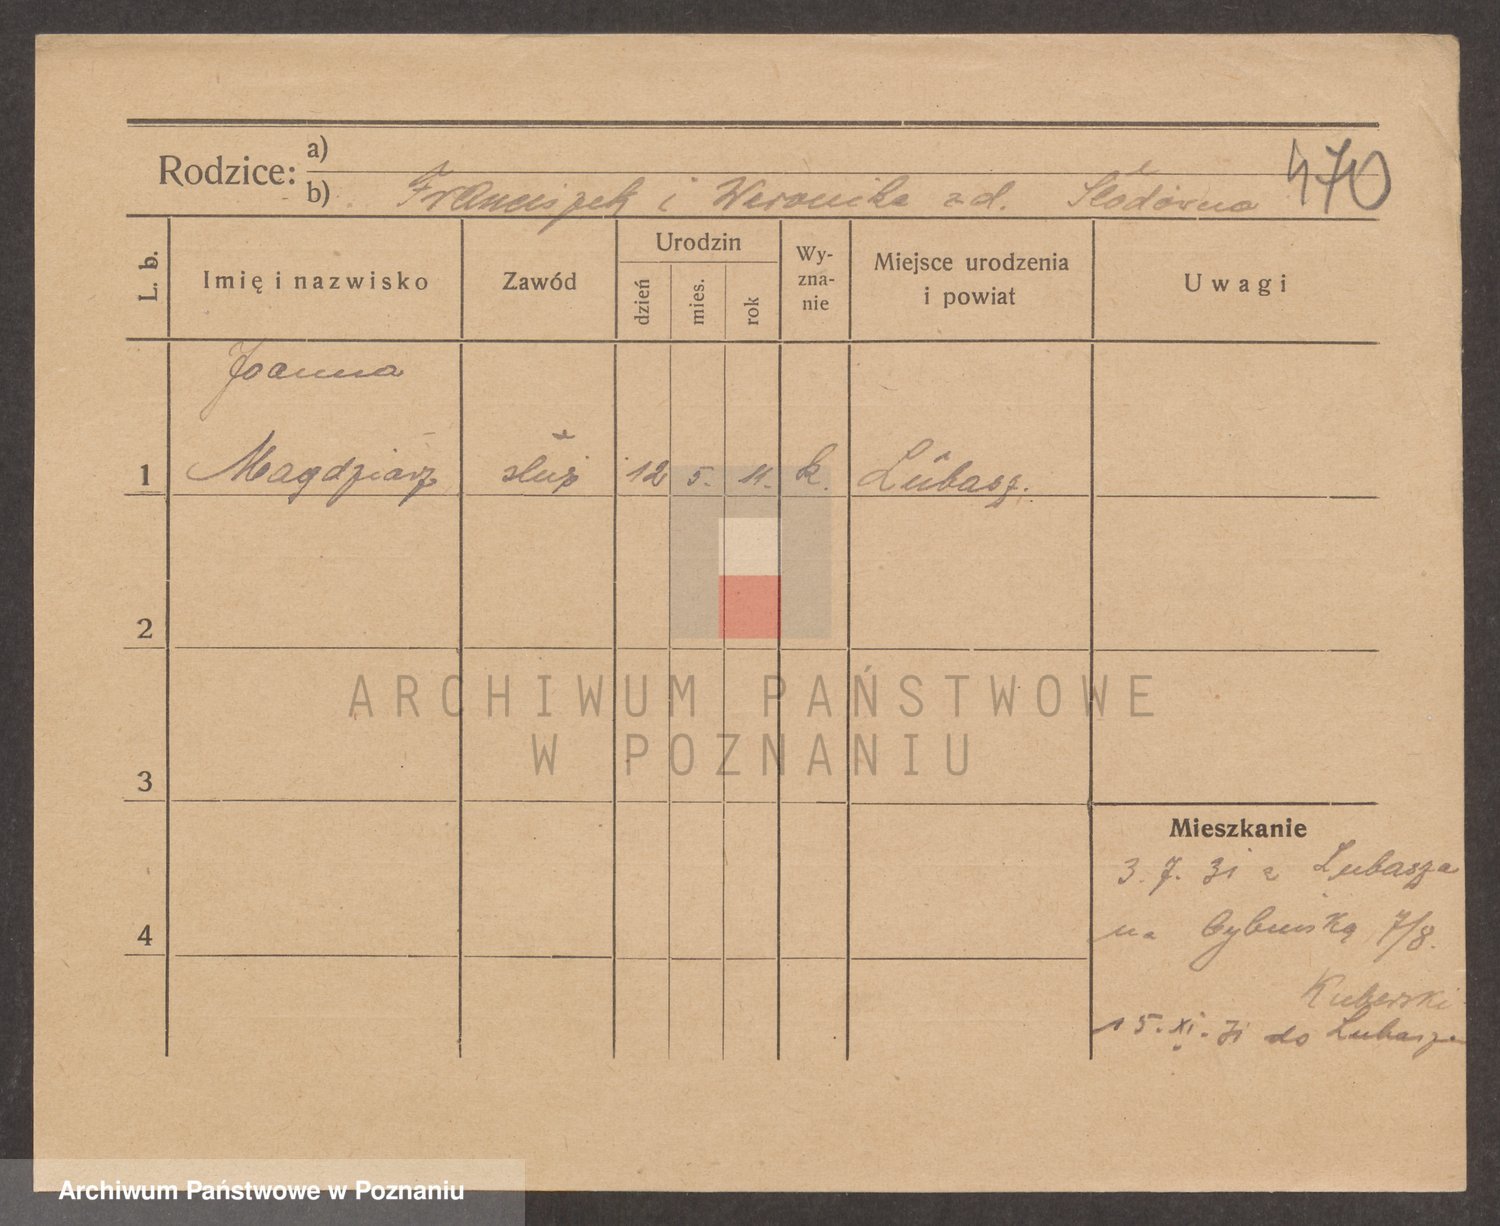 470
Rodzice: a)
b) Franciszek i Weronika zd. Słodówna
L. b.
Imię i nazwisko
Zawód
Urodzin
dzień
mies.
rok
Wy-
zna-
nie
Miejsce urodzenia
i powiat
Uwagi
Joanna
1 Magdziarz służ 12 5. 11. k. Lubasz.
2
3
4
Mieszkanie
3. 7. 31 z Lubasza
na Cybińską 7/8.
Kuberski
15. XI. 31 do Lubasza
ARCHIWUM PAŃSTWOWE
W POZNANIU
Archiwum Państwowe w Poznaniu